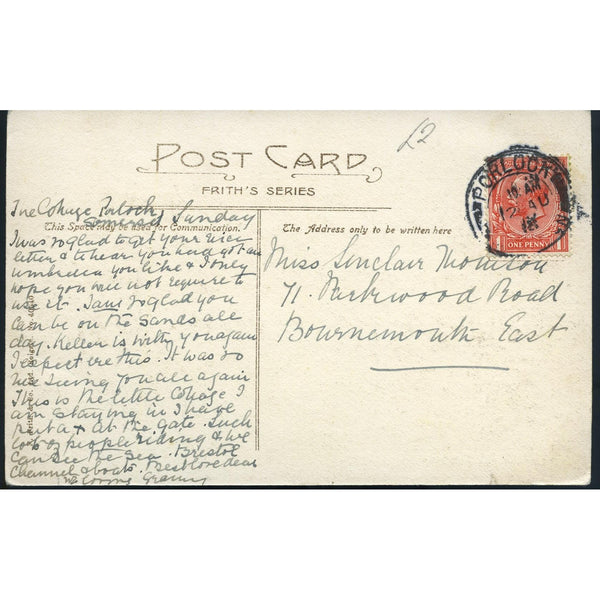 £2
POST CARD
FRITH'S SERIES
PORLOCK
10 AM
12 AU
18
1 ONE PENNY 1
The Cottage Porlock
Somerset Sunday
This Space may be used for Communication.
The Address only to be written here
I was so glad to get your nice
letter & to hear you had got an
umbrella you like & I only
hope you will not require to
use it. I am so glad you
can be on the Sands all
day. is with you again
I expect ere this. It was so
nice seeing you all again
This is the little Cottage I
am staying in I have
put a + at the gate. Such
lots of people riding & we
can see the Sea. Bristol
Channel & boats. Best love dear
Granny
Miss Sinclair Moulton
71. Parkwood Road
Bournemouth East